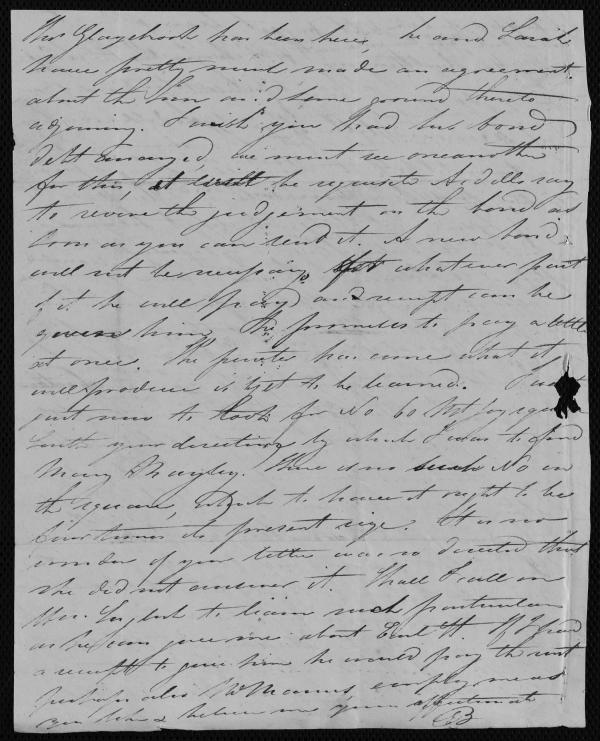 Thos Glazebrook has been here, he and Sarah
have pretty much made an agreement
about the and some ground thereto
adjoining. I wish you had his bond
debt arranged, we must see one another
for this, it will be requisite he'll say
to revive the judgement on the bond as
soon as you can send it. A new bond
will not be necessary, yet whatever part
of it he will pay and receipt can be
given him. He promises to pay a little
at once. The has come what it
will produce is yet to be learned. I
just now to look for No 60 square
with your directing by which I was to find
Mary Bayley. There is no such No in
the square, to have it ought to be
four times its present size. It is no
wonder if your letter was so directed that
she did not answer it. Shall I call on
Mr. English to learn such particulars
as he can give me about H. If I had
a receipt to give him he would pay the rent
perhaps also McManus, employ me as
you like & believe me yours affectionate
EB